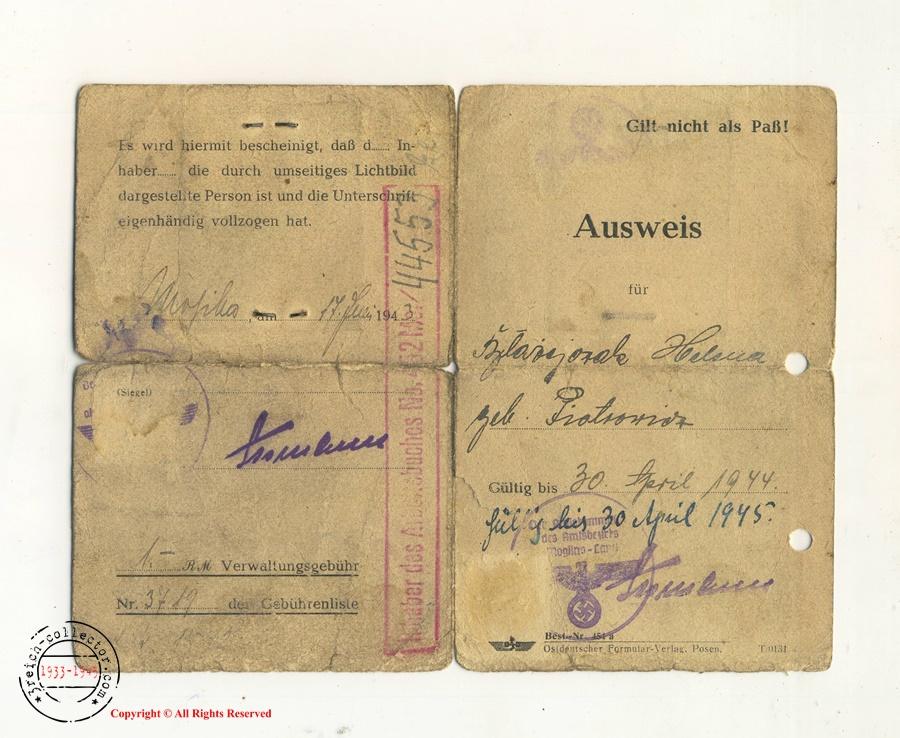 Es wird hiermit bescheinigt, daß d...... In-
haber....... die durch umseitiges Lichtbild
dargestellte Person ist und die Unterschrift
eigenhändig vollzogen hat.
, am 17. Juni 1943
(Siegel)
1.- RM Verwaltungsgebühr
Nr. 3719 der Gebührenliste
Inhaber des Arbeitsbuches No. 452 44553
Gilt nicht als Paß!
Ausweis
für
Helena
geb. Piotrowicz
Gültig bis 30. April 1944.
Gültig bis 30 April 1945.
des Amtsbezirks
Mogilno-Land
Best.-Nr. 154 a
Ostdeutscher Formular-Verlag, Posen. T 0131
3reich-collector.com
1933-1945
Copyright © All Rights Reserved